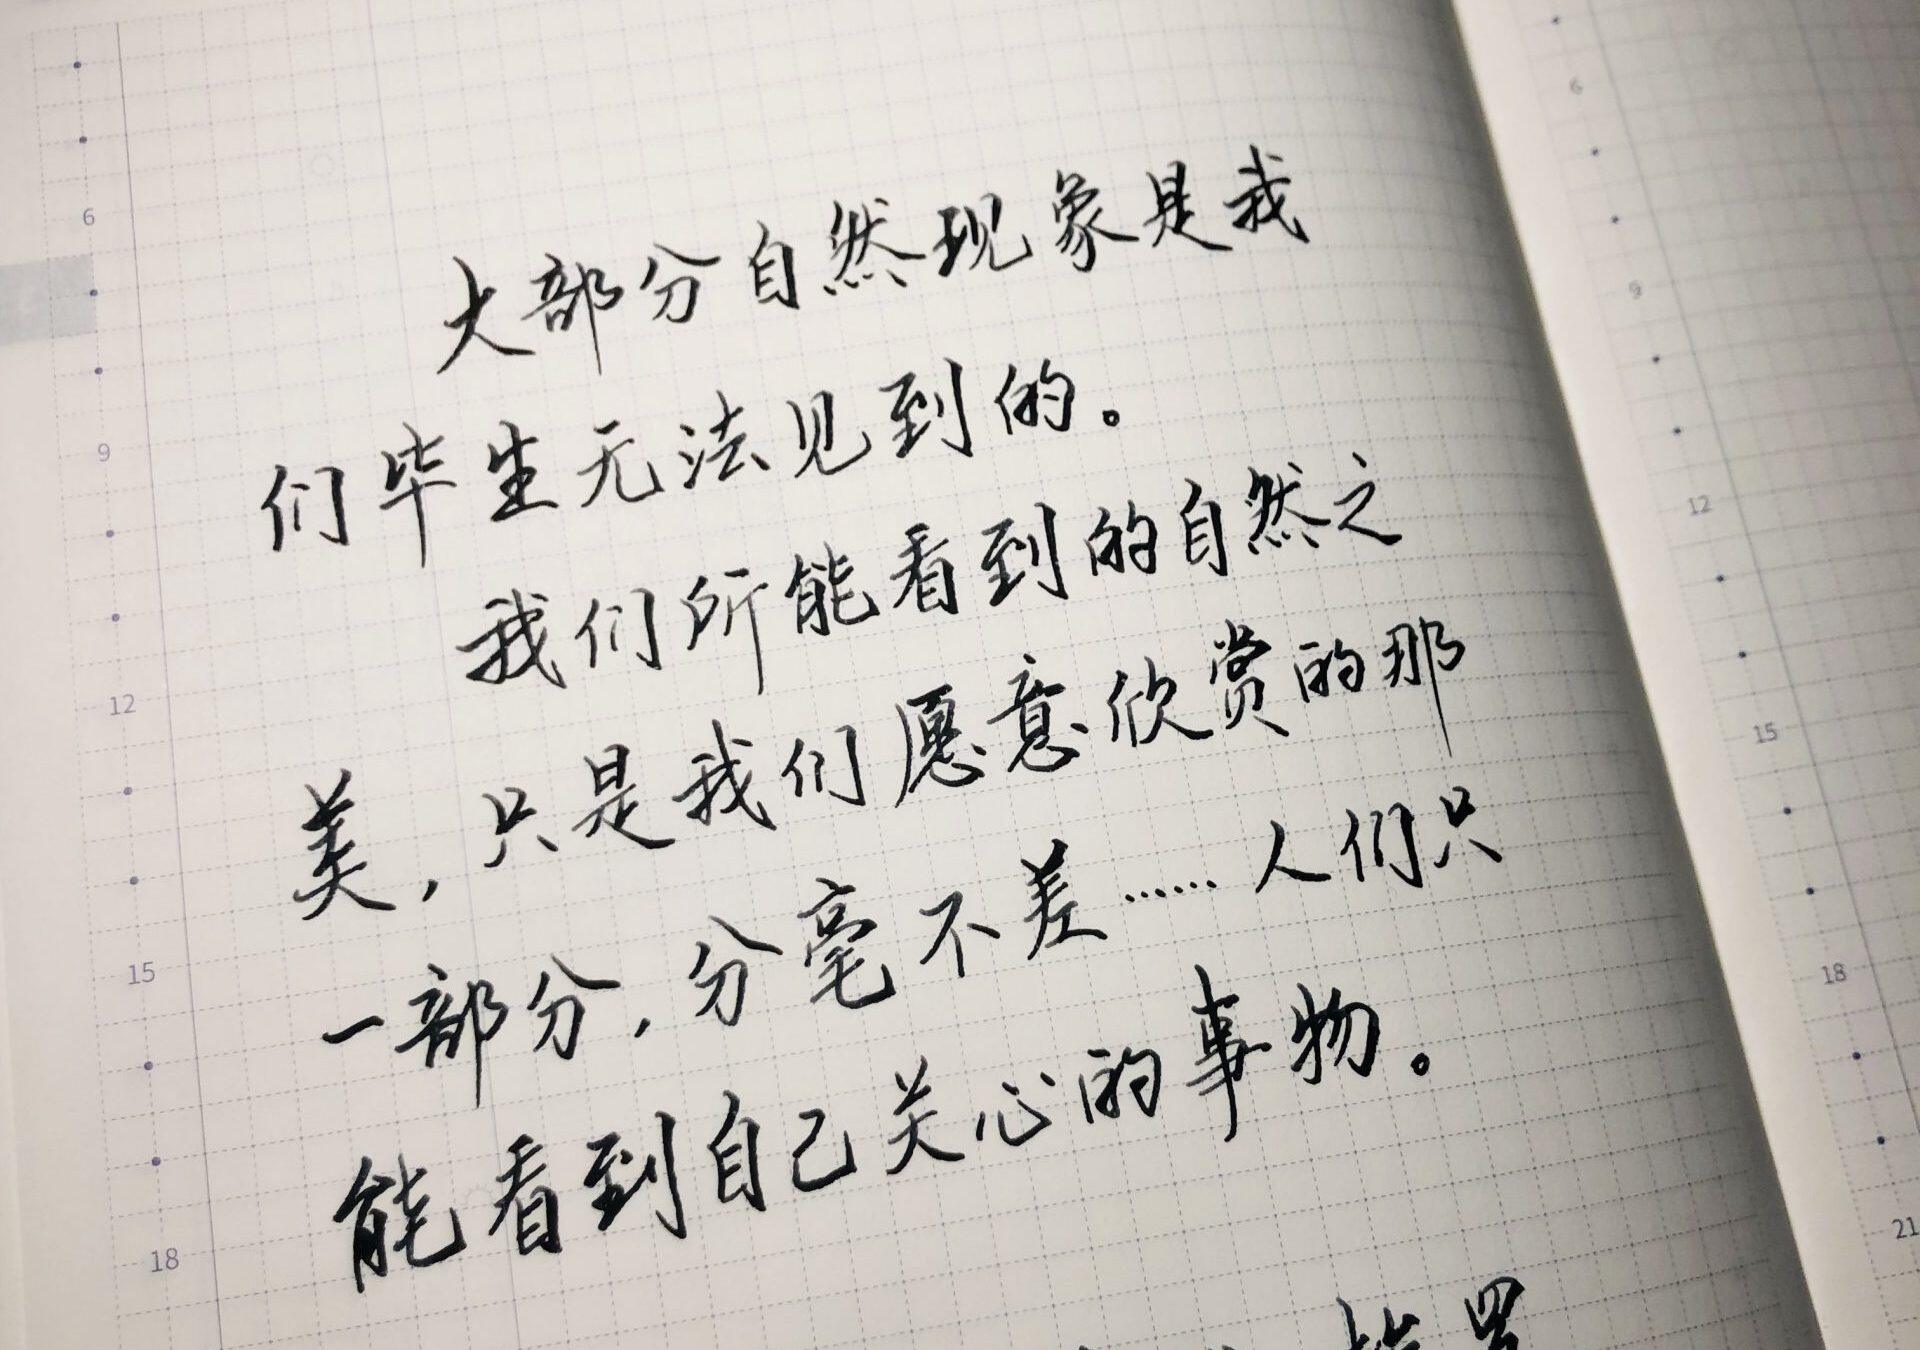 大部分自然现象是我
们毕生无法见到的。
我们所能看到的自然之
美，只是我们愿意欣赏的那
一部分，分毫不差……人们只
能看到自己关心的事物。
6
9
12
15
18
6
9
12
15
18
21